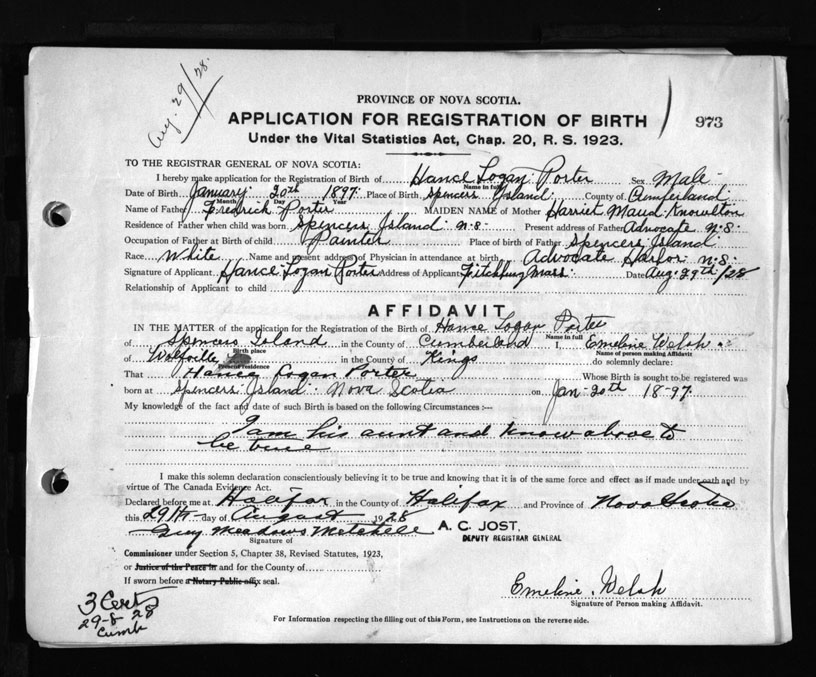 Aug. 29/28.
PROVINCE OF NOVA SCOTIA.
APPLICATION FOR REGISTRATION OF BIRTH
973
Under the Vital Statistics Act, Chap. 20, R. S. 1923.
TO THE REGISTRAR GENERAL OF NOVA SCOTIA:
I hereby make application for the Registration of Birth of Hance Logan Porter Sex Male
Name in full
Date of Birth January 20th 1897 Place of Birth Spencers Island County of Cumberland
Month Day Year
Name of Father Fredrick Porter MAIDEN NAME of Mother Harriet Maud Knowlton
Residence of Father when child was born Spencers Island N.S. Present address of Father Advocate N.S.
Occupation of Father at Birth of child Painter Place of birth of Father Spencers Island
Race White Name and Present address of Physician in attendance at birth Advocate Harbor N.S.
Signature of Applicant Hance Logan Porter Address of Applicant Fitchburg Mass. Date Aug. 29th/28
Relationship of Applicant to child
AFFIDAVIT
IN THE MATTER of the application for the Registration of the Birth of Hance Logan Porter
Name in full
of Spencers Island in the County of Cumberland I, Emeline Welsh
Birth place Name of person making Affidavit
of Wolfville in the County of Kings do solemnly declare:
Present residence
That Hance Logan Porter Whose Birth is sought to be registered was
born at Spencers Island Nova Scotia on Jan 20th 1897
My knowledge of the fact and date of such Birth is based on the following Circumstances :—
I am his aunt and know above to
be true
I make this solemn declaration conscientiously believing it to be true and knowing that it is of the same force and effect as if made under oath and by
virtue of The Canada Evidence Act.
Declared before me at Halifax in the County of Halifax and Province of Nova Scotia
this 29th day of August 1928
Guy Meadows Mitchell
A. C. JOST,
DEPUTY REGISTRAR GENERAL
Signature of
Commissioner under Section 5, Chapter 38, Revised Statutes, 1923,
or Justice of the Peace in and for the County of
If sworn before a Notary Public affix seal.
Emeline Welsh
Signature of Person making Affidavit.
3 Cert
29-8-28
Cumb
For Information respecting the filling out of this Form, see Instructions on the reverse side.